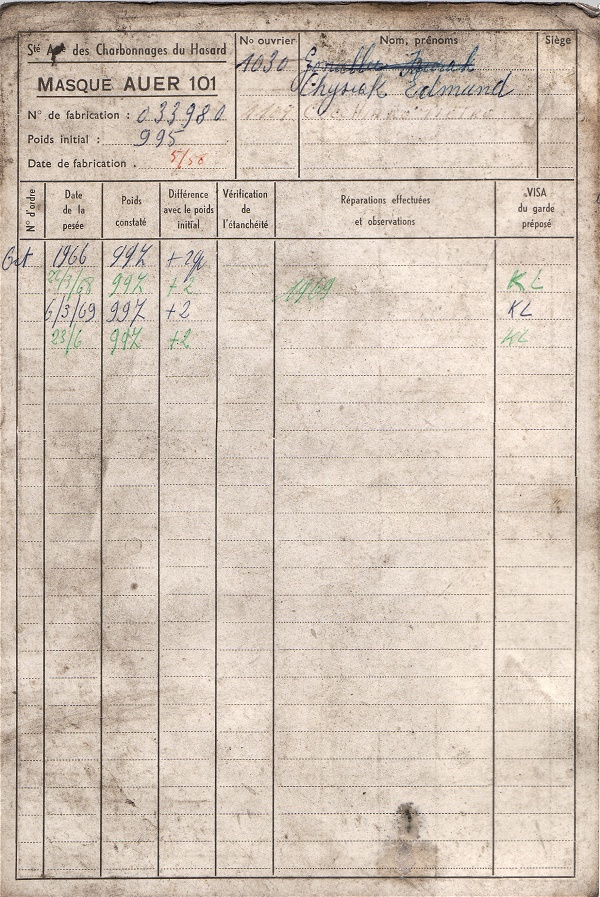 Sté A des Charbonnages du Hasard
MASQUE AUER 101
N° de fabrication : 033980
Poids initial : 995
Date de fabrication . 5/56
N° ouvrier
1030
Nom, prénoms
Chysiak Edmund
Siège
N° d'ordre
Date de la pesée
Poids constaté
Différence avec le poids initial
Vérification de l'étanchéité
Réparations effectuées et observations
VISA du garde préposé
Oct 1966 997 +2gr
/68 997 +2 1969 KL
6/3/69 997 +2 KL
23/6 997 +2 KL